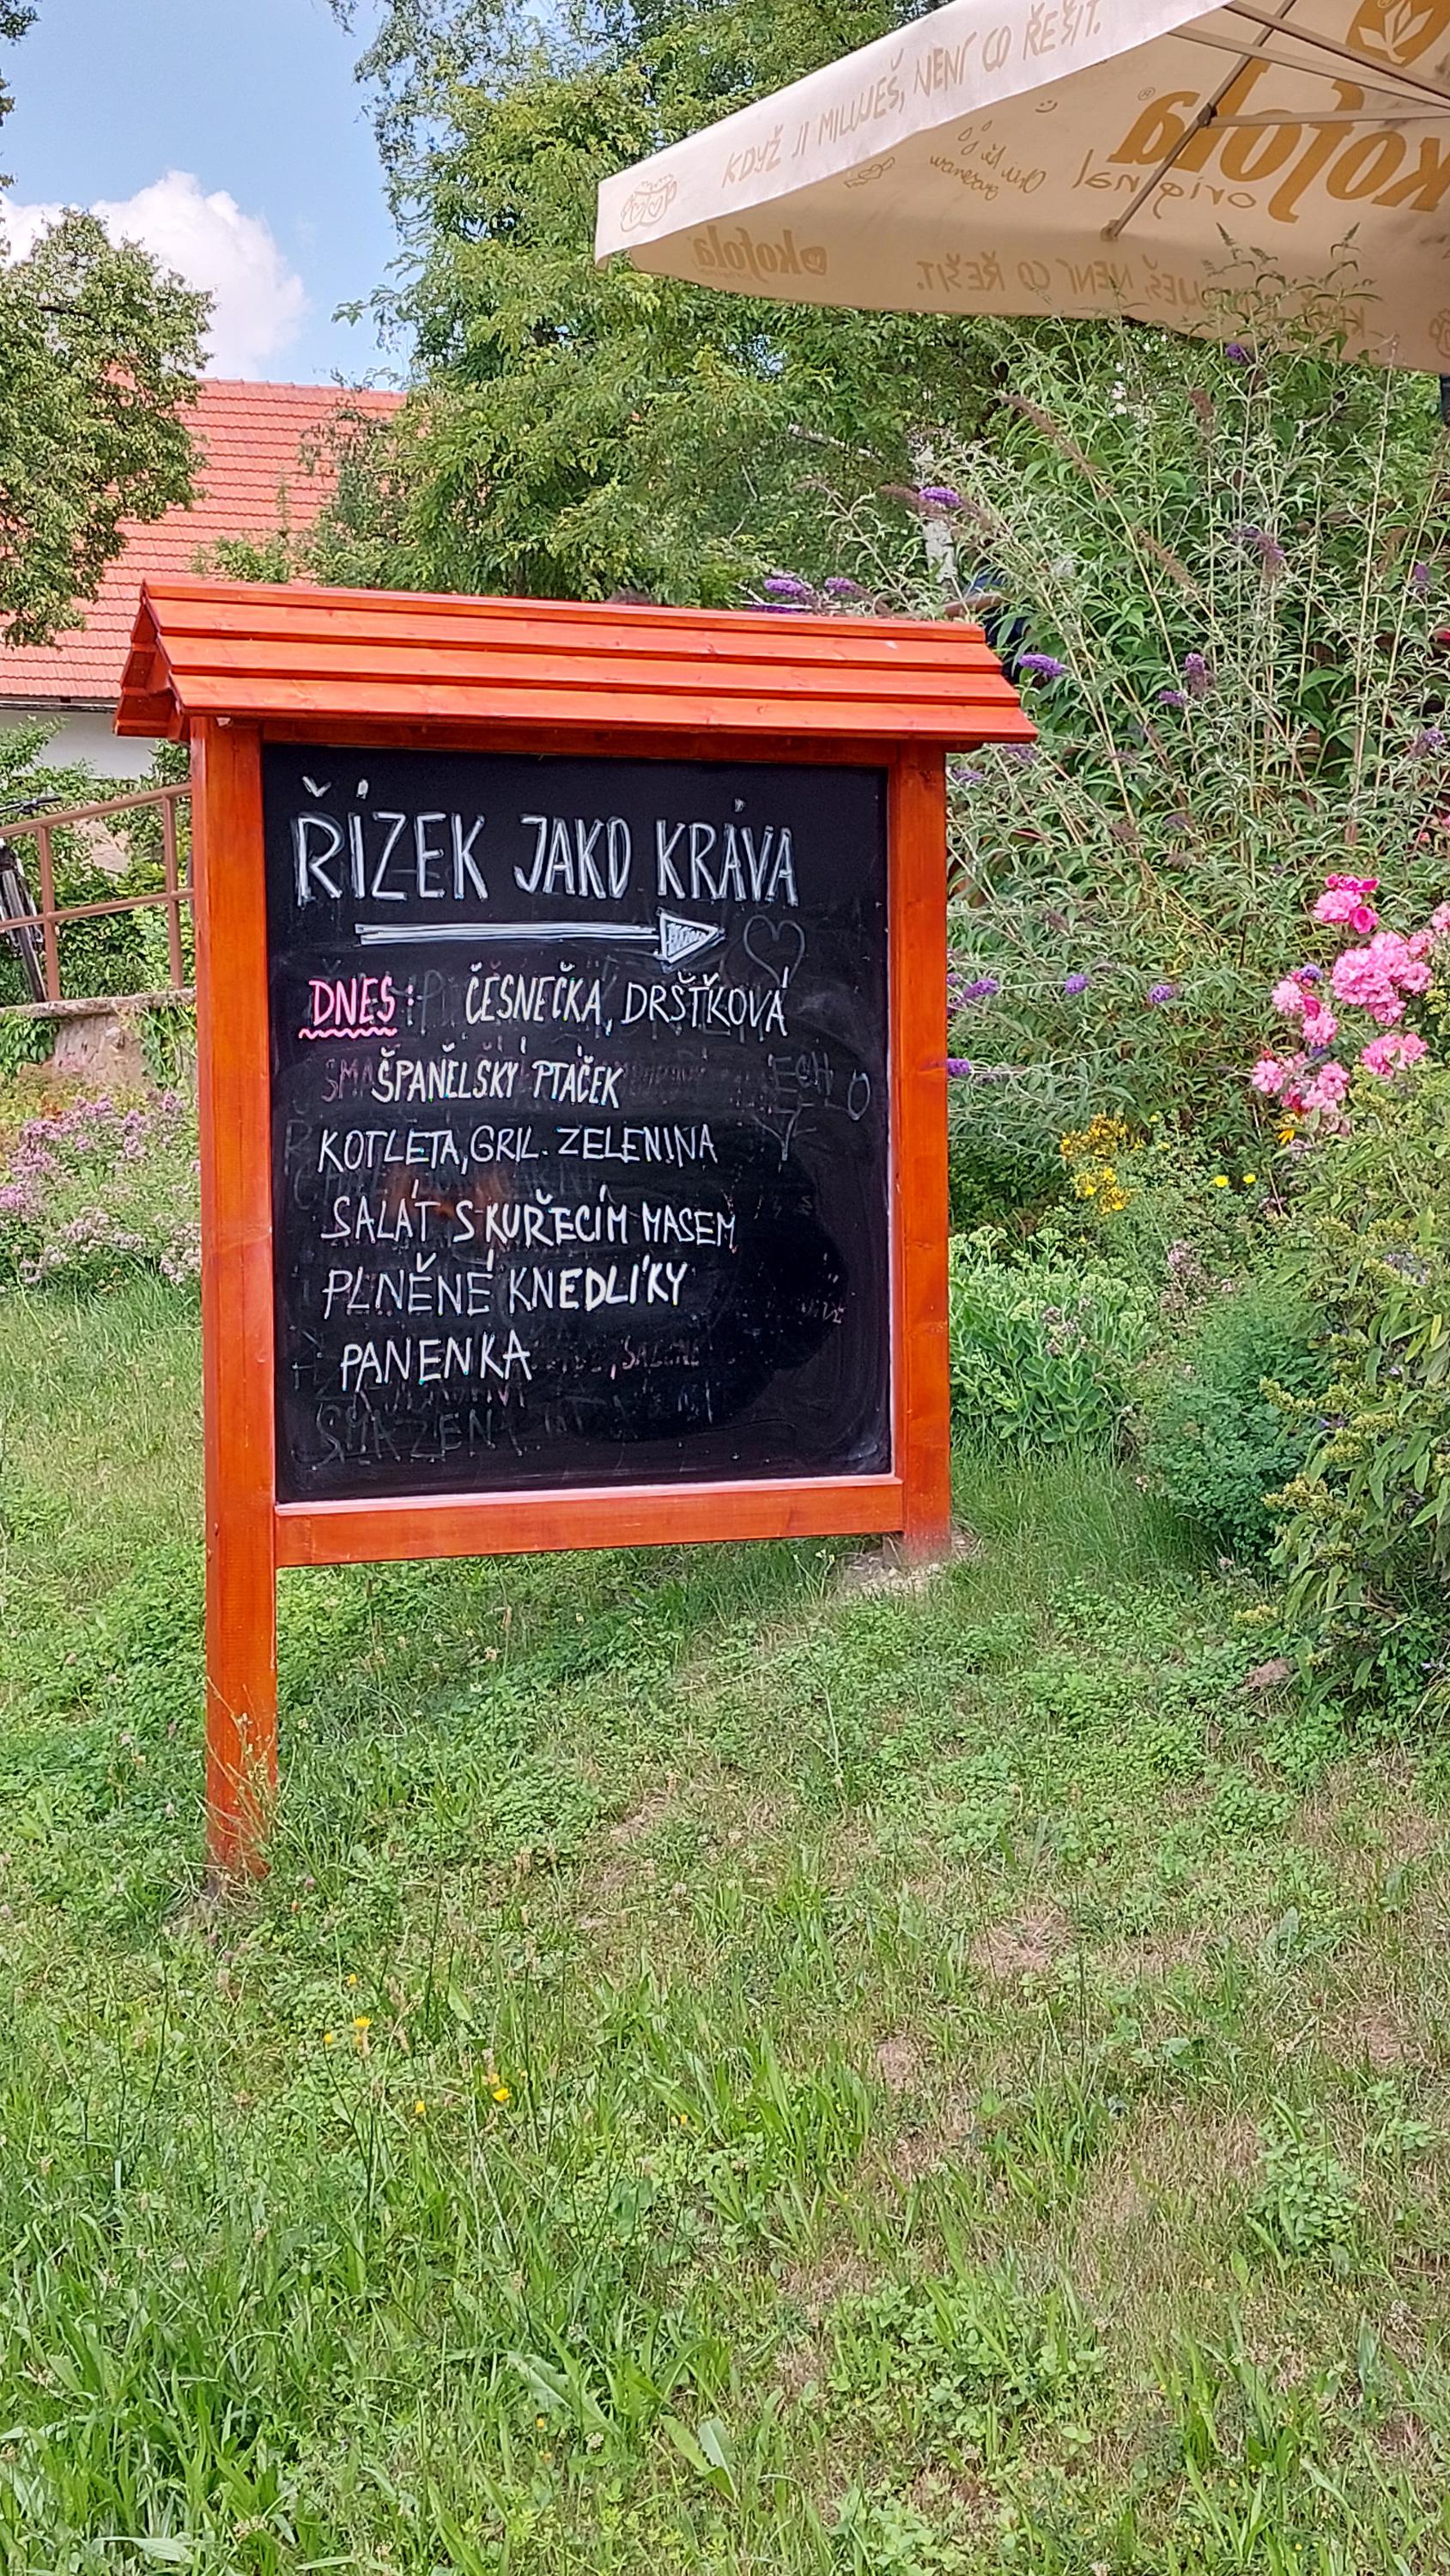 KDYŽ JI MILUJEŠ, NENÍ CO ŘEŠIT.
kofola
original
kofola
NENÍ CO ŘEŠIT.
ŘÍZEK JAKO KRÁVA
DNES: ČESNEČKA, DRŠŤKOVÁ
ŠPANĚLSKÝ PTÁČEK
KOTLETA, GRIL. ZELENINA
SALÁT S KUŘECÍM MASEM
PLNĚNÉ KNEDLÍKY
PANENKA